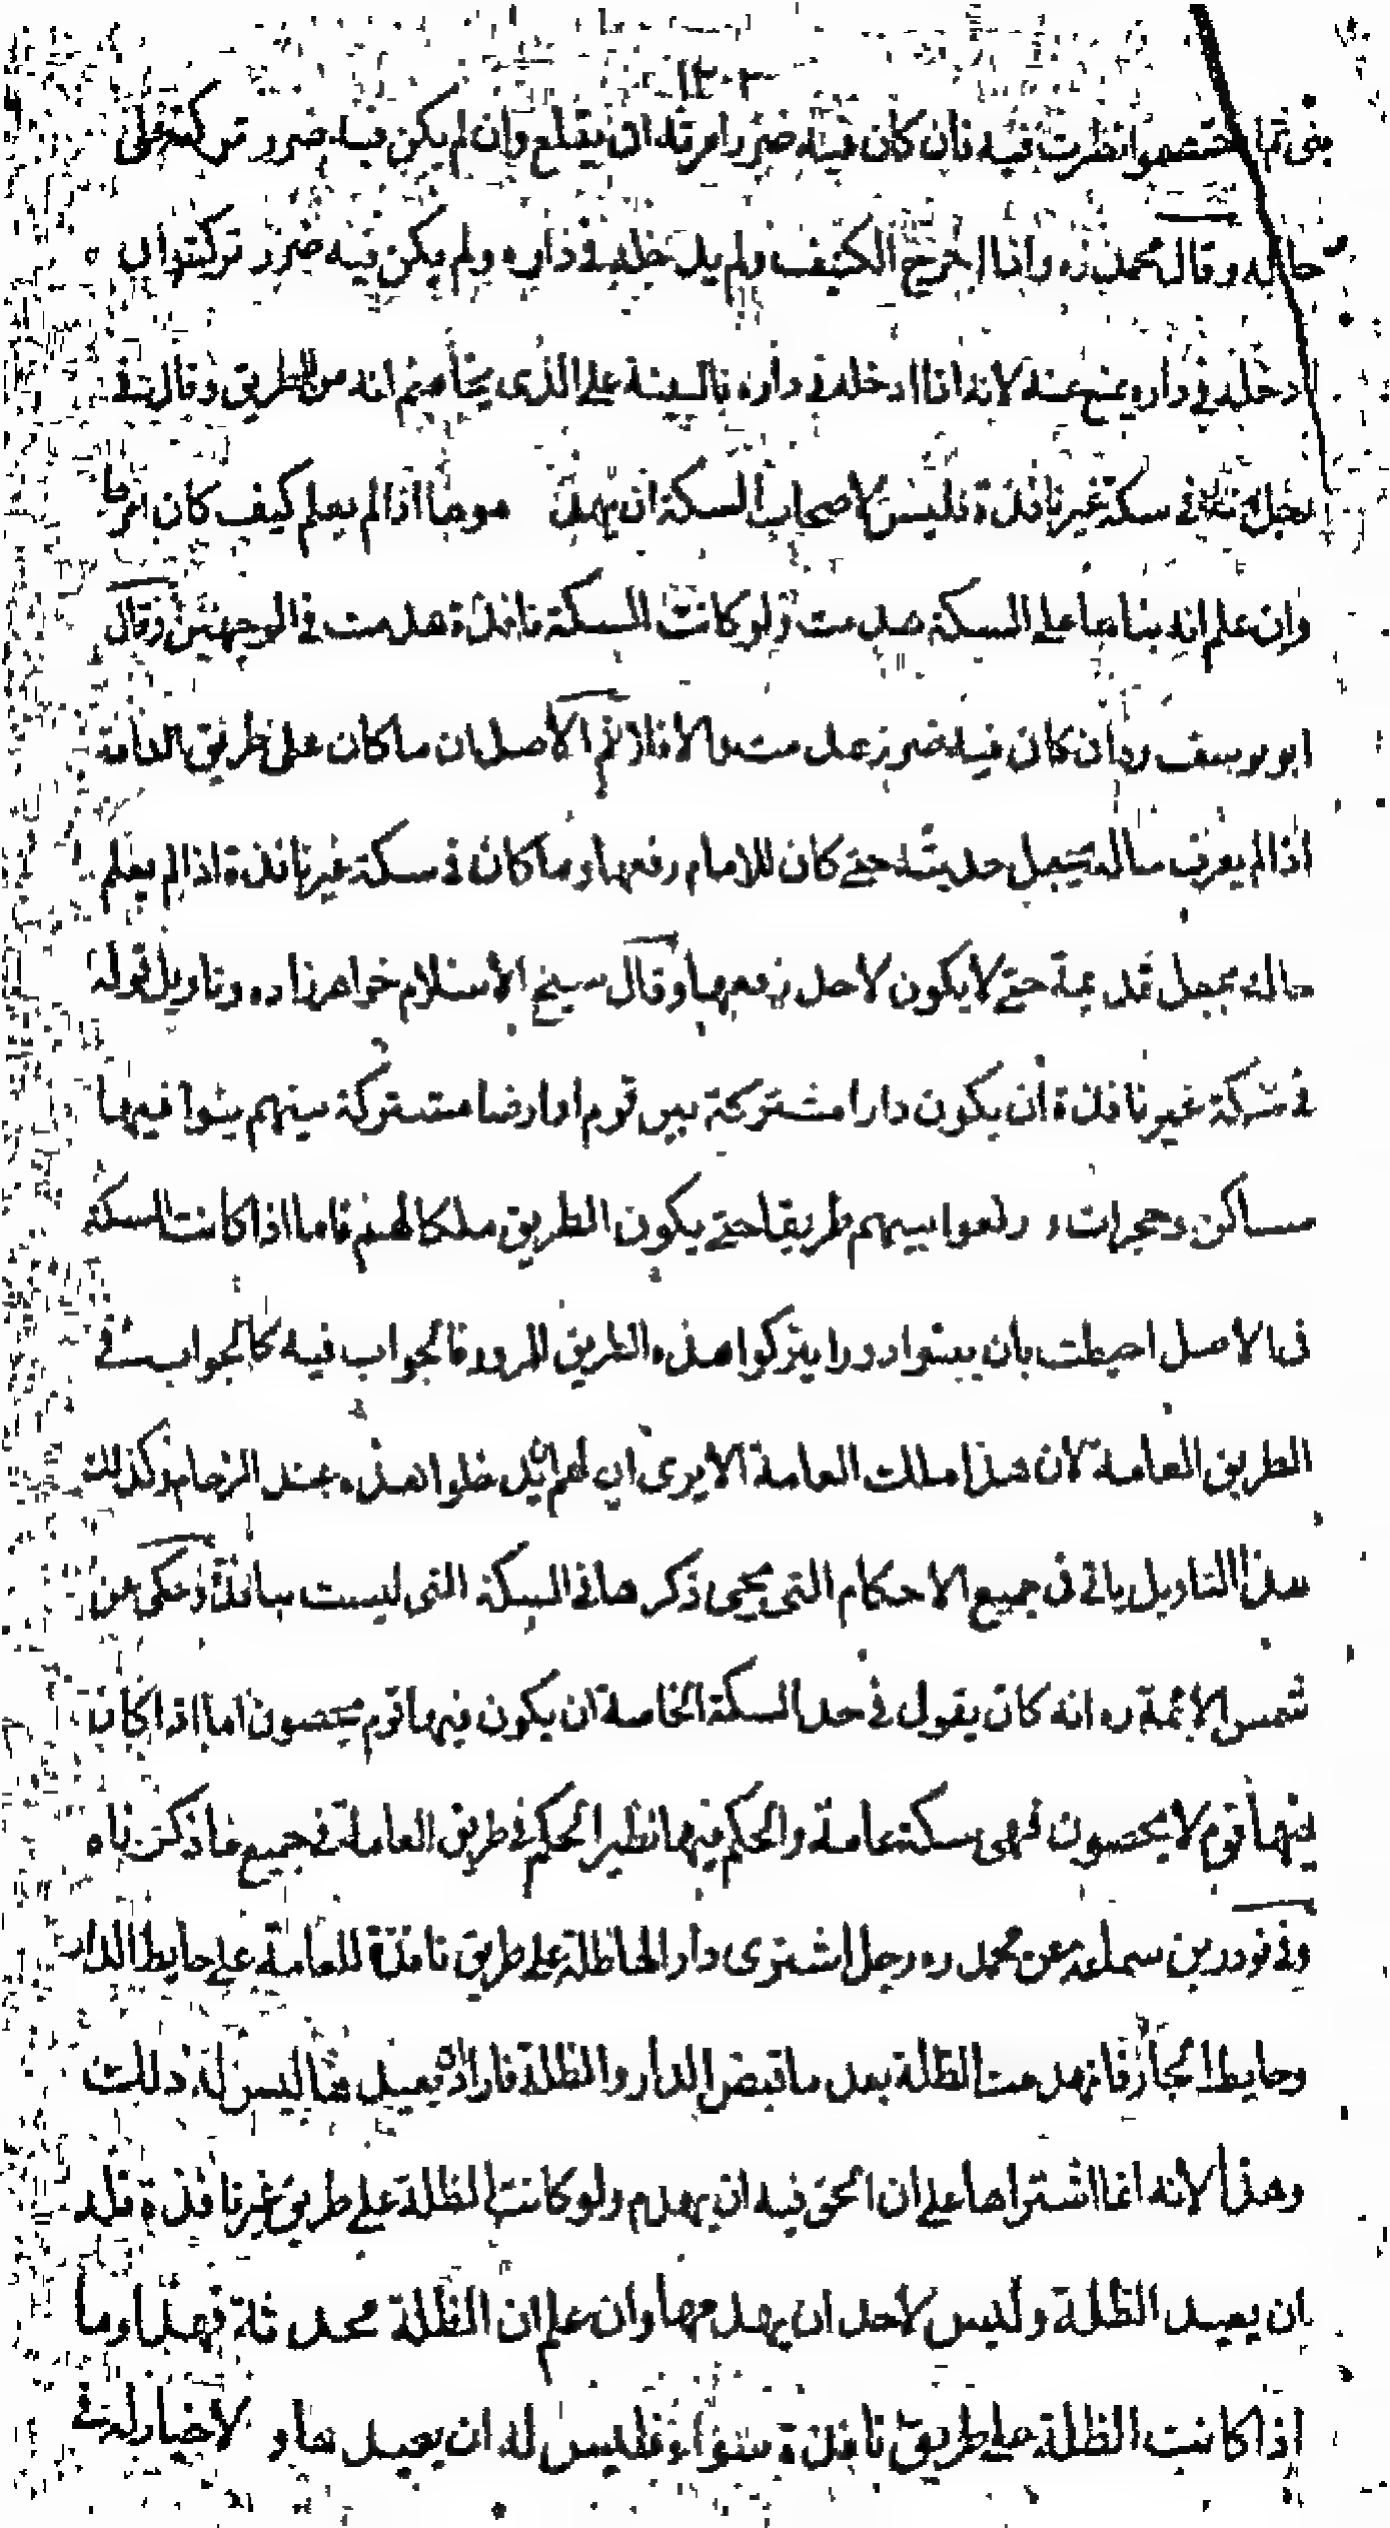 بنى ثم اختصموا نظرت فيه فان كان فيه ضررا مرته ان يقلع وان لم يكن فيه ضرر تركته على
حاله وقال محمد ره واذا اخرج الكنيف ولم يدخله في داره ولم يكن فيه ضرر تركته وان
ادخله في داره يمنع عنه لانه اذا ادخله في داره بالبينة على الذى يخاصم انه من الطريق وقال في
رجل له ظلة في سكة غير نافذة فليس لاصحاب السكة ان يهد موها اذا لم يعلم كيف كان امرها
وان علم انه بناها على السكة هدمت ولو كانت السكة نافذة هدمت في الوجهين وقال
ابو يوسف ره ان كان فيه ضرر هدمت والا فلا ثم الاصل ان ما كان على طريق العامة
اذا لم يعرف حاله يجعل حديثه حتى كان للامام رفعها وما كان في سكة غير نافذة اذا لم يعلم
حاله يجعل قديمة حتى لا يكون لاحد رفعها وقال شيخ الاسلام خواهرزاده وتاويل قوله
في سكة غير نافذة ان يكون دارا مشتركة بين قوم او ارضا مشتركة بينهم بنوا فيها
مساكن وحجرات و رفعوا بينهم طريقا حتى يكون الطريق ملكا لهم فاما اذا كانت السكة
فى الاصل احيطت بان يبنوا دورا يتركوا هذه الطريق للمرور فالجواب فيه كالجواب في
الطريق العامة لان هذا ملك العامة الا يرى ان لهم ان يدخلوا هذه عند الزحام وكذلك
هذا التاويل ياتى فى جميع الاحكام التى يجى ذكرها فى السكة التى ليست بنافذة وحكى عن
شمس الائمة ره انه كان يقول في حد السكة الخاصة ان يكون فيها قوم يحصون اما اذا كان
فيها قوم لا يحصون فهى سكة عامة والحكم فيها نظير الحكم في طريق العامة في جميع ما ذكرناه
وفي نودر بن سماعه عن محمد ره رجل اشترى دارا لها ظلة على طريق نافذة للعامة على حايط الدار
وحايط الجار فانهدمت الظلة بعد ما قبض الدار والظلة فاراد ان يعيدها ليس له ذلك
وهذا لانه انما اشتراها على ان الحق فيه ان يهدم ولو كانت الظلة على طريق غير نافذة فله
ان يعيد الظلة وليس لاحد ان يهدمها وان علم ان الظلة محدثة فهذا وما
اذا كانت الظلة على طريق نافذة سواء فليس له ان يعيدها و لا خيار له في